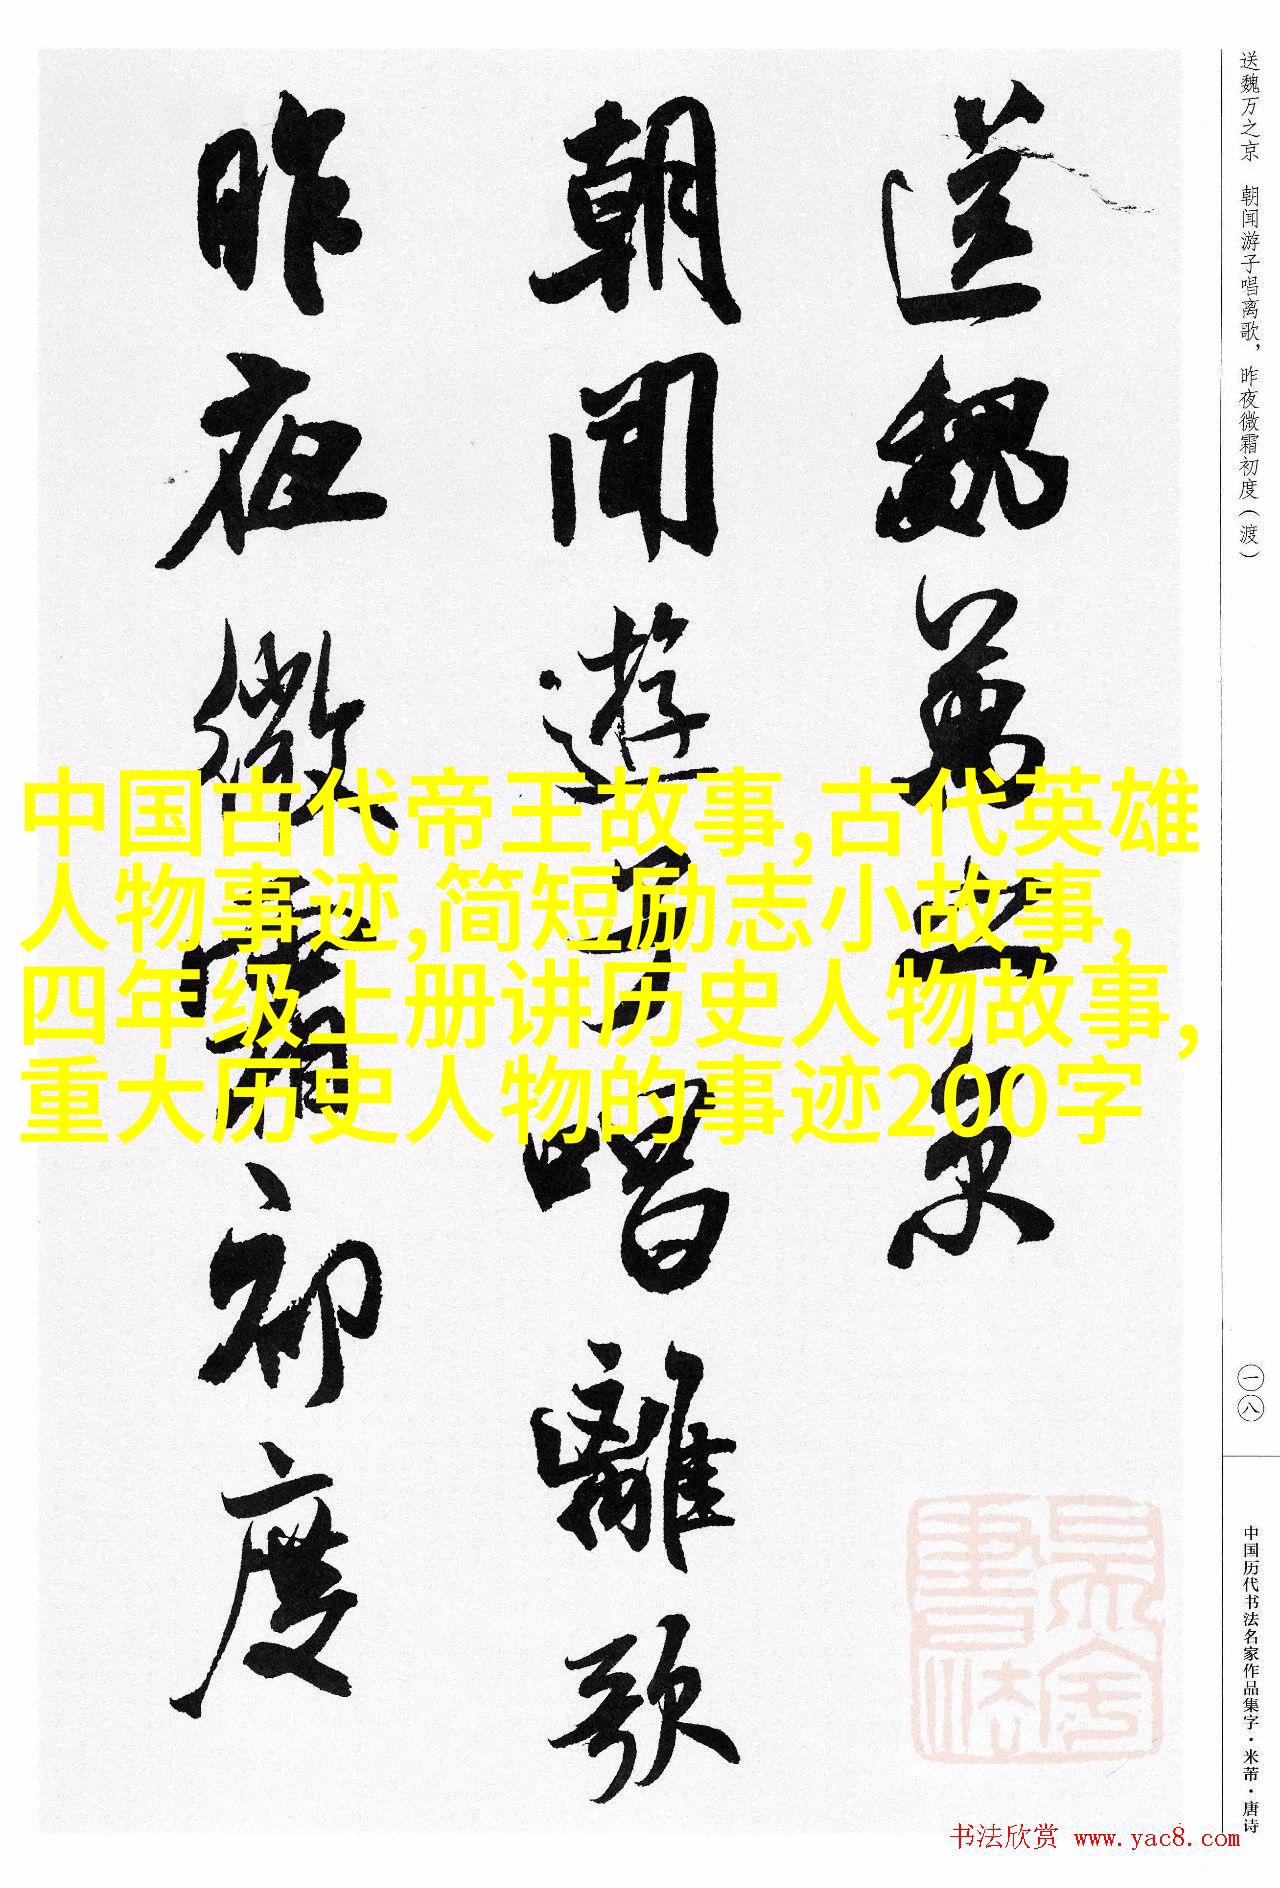 送魏万之京 朝闻游子唱离歌，昨夜微霜初度（渡）
一八
中国历代书法名家作品集字·米芾·唐诗
送魏萬之京
朝聞遊子唱離歌
昨夜微霜初度
中国古代帝王故事,古代英雄
人物事迹,简短励志小故事,
四年级上册讲历史人物故事,
重大历史人物的事迹200字
书法欣赏 www.yac8.com